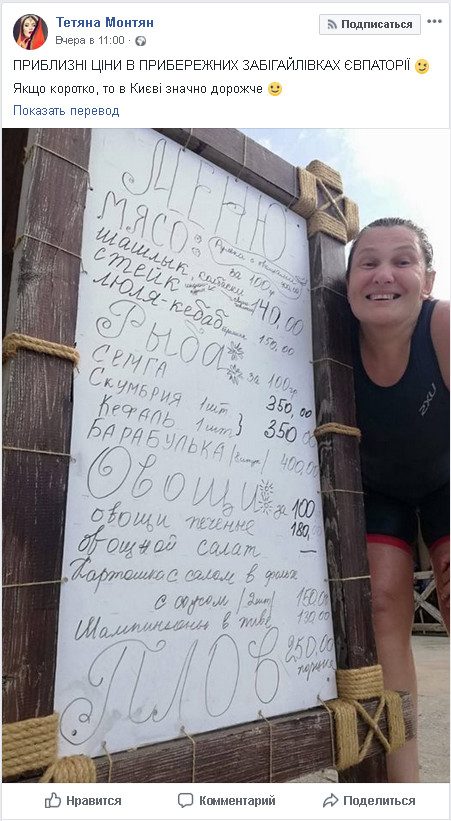 Тетяна Монтян
Вчера в 11:00 ·
Подписаться
ПРИБЛИЗНІ ЦІНИ В ПРИБЕРЕЖНИХ ЗАБІГАЙЛІВКАХ ЄВПАТОРІЇ
Якщо коротко, то в Києві значно дорожче
Показать перевод
МЕНЮ
МЯСО:
за 100гр
шашлык,
СТЕЙК 140,00
люля-кебаб 150,00
Рыба за 100гр
СЕМГА 350,00
Скумбрия 1шт
Кефаль 1шт } 350,00
БАРАБУЛЬКА 400,00
Овощи за 100
овощи печенные 180,00
овощной салат
Картошка с салом в фольге
с сыром (2шт) 150,00
Шампиньоны 130,00
ПЛОВ 250,00
порция
2XU
Нравится
Комментарий
Поделиться